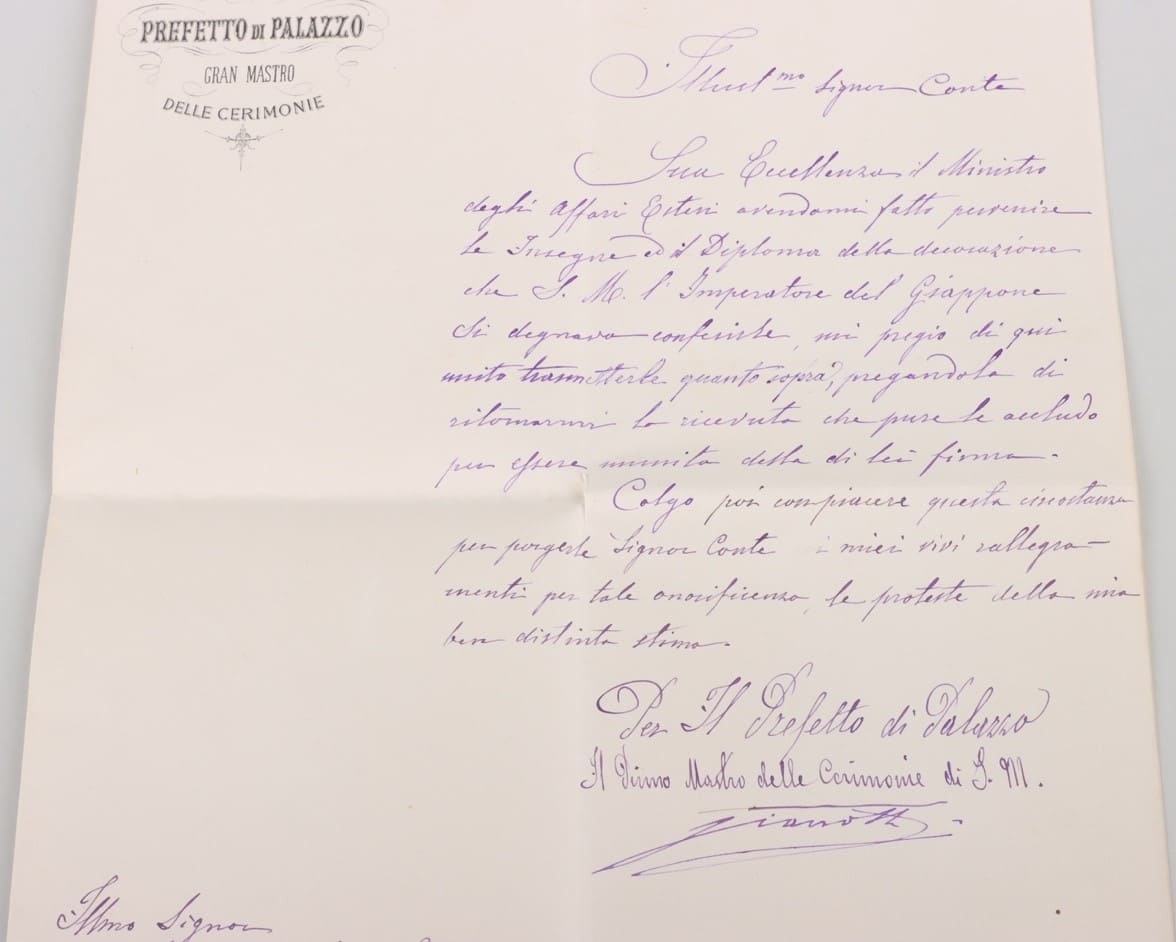 PREFETTO DI PALAZZO
GRAN MASTRO
DELLE CERIMONIE
Illust.mo Signor Conte
Sua Eccellenza il Ministro
degli Affari Esteri avendomi fatto pervenire
le Insegne ed il Diploma della decorazione
che S. M. l'Imperatore del Giappone
Si degnava conferirle, mi pregio di qui
unito trasmetterle quanto sopra, pregandola di
ritornarmi la ricevuta che pure le accludo
per essere munita della di lei firma.
Colgo poi con piacere questa circostanza
per porgerle Signor Conte i miei vivi rallegra-
menti per tale onorificenza, le proteste della mia
ben distinta stima.
Per Il Prefetto di Palazzo
Il Primo Mastro delle Cerimonie di S. M.
Gianotti
Illmo Signor